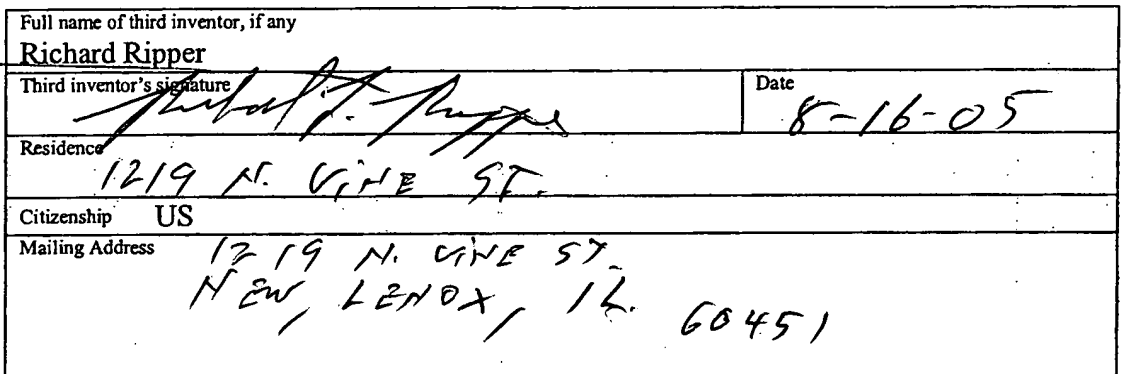 Full name of third inventor, if any
Richard Ripper
Third inventor's signature Date
Richard J. Ripper 8-16-05
Residence
1219 N. VINE ST.
Citizenship US
Mailing Address 1219 N. VINE ST.
NEW, LENOX, IL. 60451